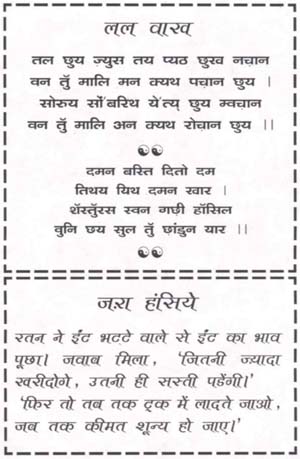 लल वाख
तल छुय ज़्युस तय प्यठ छुख नच़ान
वन तुँ मालि मन क्यथ पच़ान छुय ।
सोरुय सोँबरिथ येत्य् छुय म्वच़ान
वन तुँ मालि अन क्यथ रोच़ान छुय ।।
दमन बस्ति दितो दम
तिथय यिथ दमन खार ।
शॅस्तुँरस स्वन गछी हॉसिल
वुनि छय सुल तुँ छांडुन यार ।।
ज़रा हंसिये
रतन ने ईंट भटटे वाले से ईंट का भाव
पूछा। जवाब मिला, 'जितनी ज्यादा
खरीदोगे, उतनी ही सस्ती पड़ेंगी।'
'फिर तो तब तक ट्रक में लादते जाओ,
जब तक कीमत शून्य हो जाए।'